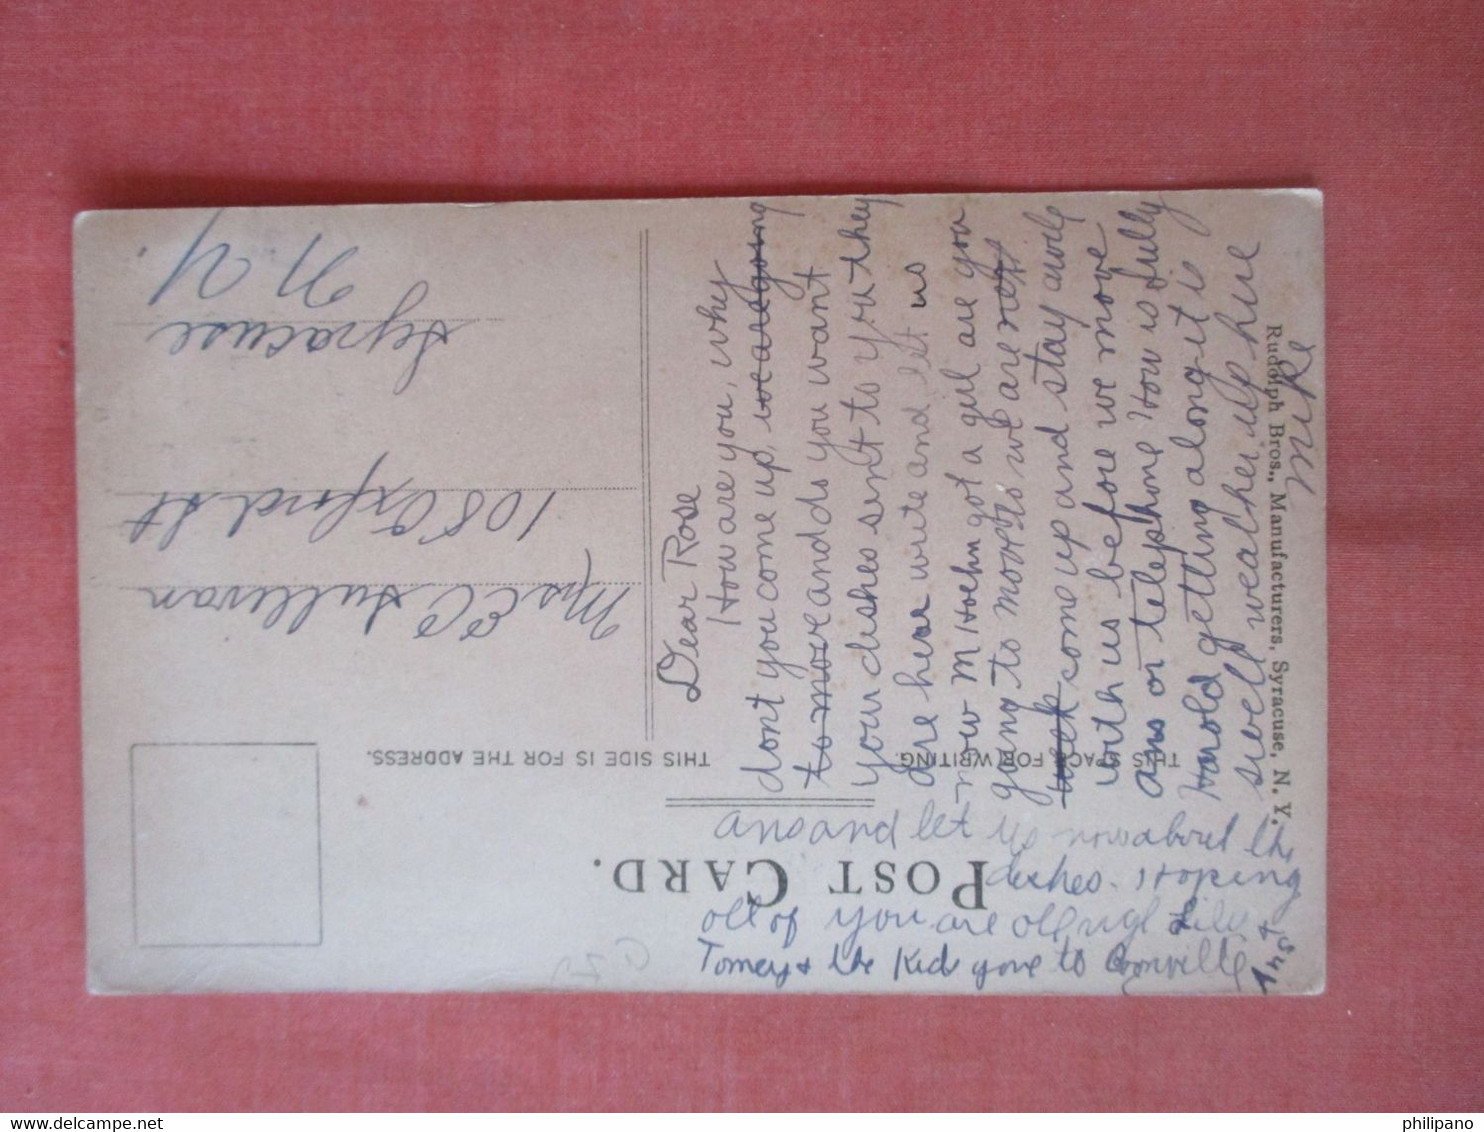 POST CARD.
THIS SPACE FOR WRITING.
THIS SIDE IS FOR THE ADDRESS.
Rudolph Bros., Manufacturers, Syracuse, N. Y.
Mrs E C Sullivan
108 Oxford St
Syracuse
N. Y.
Dear Rose
How are you, why
dont you come up, we are going
to move and do you want
your dishes sent to you they
are here write and let us
now M Hoehn got a girl are you
going to move to we are next
week come up and stay awile
with us before we move
ans or telephone How is Lully
Harold getting along it is
swell weather up hire
Mike
ans and let us now about the
dishes. Hoping
all of you are all
Tomey + the Kids gone to Boonville
philipano
delcampe.net